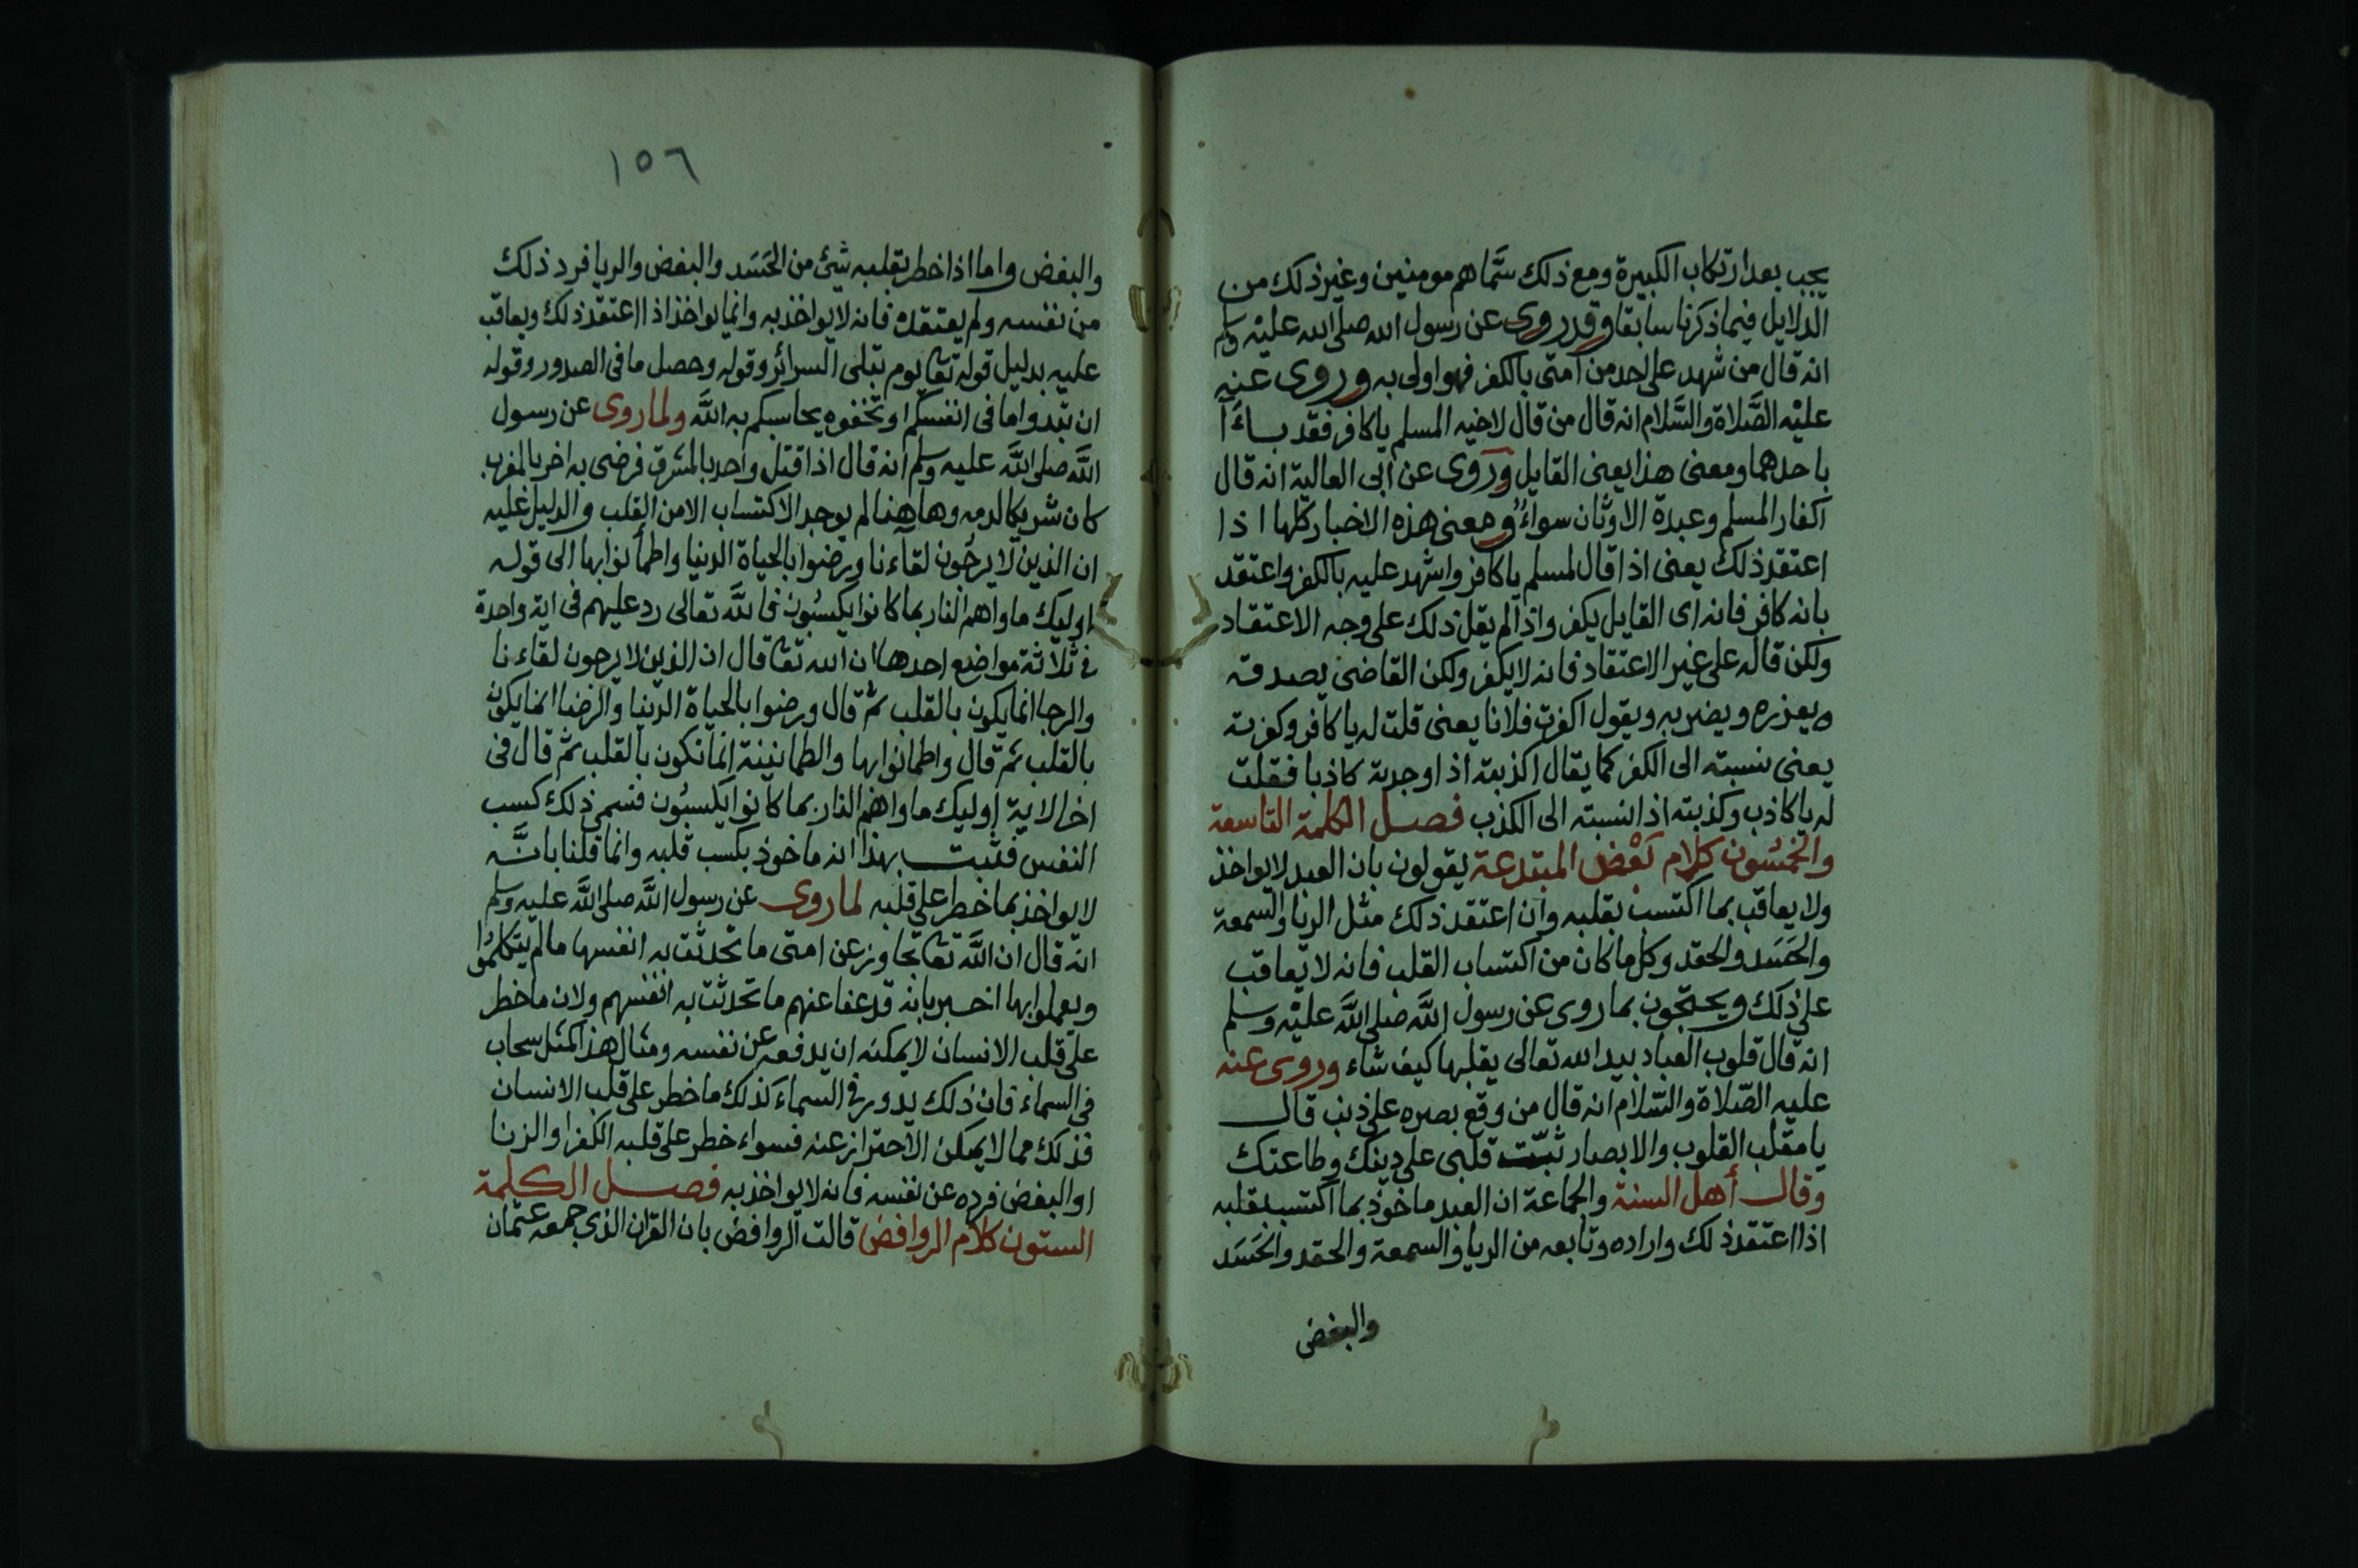 يجب بعد ارتكاب الكبيرة ومع ذلك سَّماهم مومنين وغير ذلك من
الدلايل فيما ذكرنا سابقا وقد روى عن رسول الله صلى الله عليه وسلم
انه قال من شهد على احد من امتى بالكفر فهو اولى به وروى عنه
عليْه الصَّلاة والسَّلام انه قال من قال لاخيه المسلم يا كافر فقد باءَ
باحدهما ومعنى هذا يعنى القايل وروى عن ابى العالية انه قال
اكفار المسلم وعبدة الاوثان سواءٌ ومعنى هذه الاخبار كلها اذا
اعتقد ذلك يعنى اذا قال لمسلم يا كافر واشهد عليه بالكفر واعتقد
بانه كافر فانه اى القايل يكفر واذا لم يقل ذلك على وجه الاعتقاد
ولكن قاله على غير الاعتقاد فانه لا يكفر ولكن القاضى يصدقه
ويعذره ويضربه ويقول اكفرت فلانا يعنى قلت له يا كافر وكفرته
يعنى نسبته الى الكفر كما يقال اكذبته اذا وجدته كاذبا فقلت
له يا كاذب وكذبته اذا نسبته الى الكذب فصل الكلمة التاسعة
والخمسُون كلام بَعْض المبتدعة يقولون بان العبد لا يواخذ
ولا يعاقب بما اكتسب بقلبه وان اعتقد ذلك مثل الريا والسمعة
والحَسَد والحقد وكل ما كان من اكتساب القلب فانه لا يعاقب
على ذلك ويحتجون بما روى عن رسول الله صلى الله عليْه وسلم
انه قال قلوب العباد بيد الله تعالى يقلبها كيف شاء وروى عنه
عليه الصّلاة والسّلام انه قال من وقع بصره على ذنب قال
يا مقلب القلوب والابصار ثبّت قلبى على دينك وطاعتك
وقال أهل السنة والجماعة ان العبد ماخوذ بما اكتسب بقلبه
اذا اعتقد ذلك واراده وتابعه من الريا والسمعة والحقد والحَسَد
والبغض
١٥٦
والبغض واما اذا خطر بقلبه شئ من الحَسَد والبغض والريا فرد ذلك
من نفسه ولم يعتقده فانه لا يواخذ به وانما يواخذ اذا اعتقد ذلك ويعاقب
عليه بدليل قوله تعا يوم تبلى السرائر وقوله وحصل ما فى الصدور وقوله
ان تبدوا ما فى انفسكم او تخفوه يحاسبكم به الله ولما روى عن رسول
الله صلى الله عليه وسلم انه قال اذا قتل واحد بالمشرق فرضى به اخر بالمغرب
كان شريكا لدمه وهاهنا لم يوجد الاكتساب الا من القلب والدليل عليه
ان الذين لا يرجُون لقآءنا ورضوا بالحياة الدنيا واطمأنوا بها الى قوله
اوليك ماواهم النار بما كانوا يكسبُون فالله تعالى رد عليهم فى اية واحدة
فى ثلاثة مواضع احدها ان الله تعا قال ان الذين لا يرجون لقاءنا
والرجا انما يكون بالقلب ثم قال ورضوا بالحياة الدنيا والرضا انما يكون
بالقلب ثم قال واطمانوا بها والطمانينة انما تكون بالقلب ثم قال فى
اخر الاية اوليك ماواهم النار بما كانوا يكسبُون فسمى ذلك كسب
النفس فثبت بهذا انه ماخوذ بكسب قلبه وانما قلنا بانَّه
لا يواخذ بما خطر على قلبه لما روى عن رسول الله صلى الله عليه وسلم
انه قال ان الله تعا تجاوز عن امتى ما تحدثت به انفسها ما لم يتكلمُوا
ويعملوا بها اخبر بانه قد عفا عنهم ما تحدثت به انفسهم ولان ما خطر
على قلب الانسان لا يمكنه ان يدفعه عن نفسه ومثال هذا كمثل سحاب
فى السماء فان ذلك يدور فى السماء كذلك ما خطر على قلب الانسان
فذلك مما لا يمكن الاحتراز عنه فسواء خطر على قلبه الكفر او الزنا
او البغض فرده عن نفسه فانه لا يواخذ به فصل الكلمة
الستون كلام الروافض قالت الروافض بان القران الذى جمعه عثمان